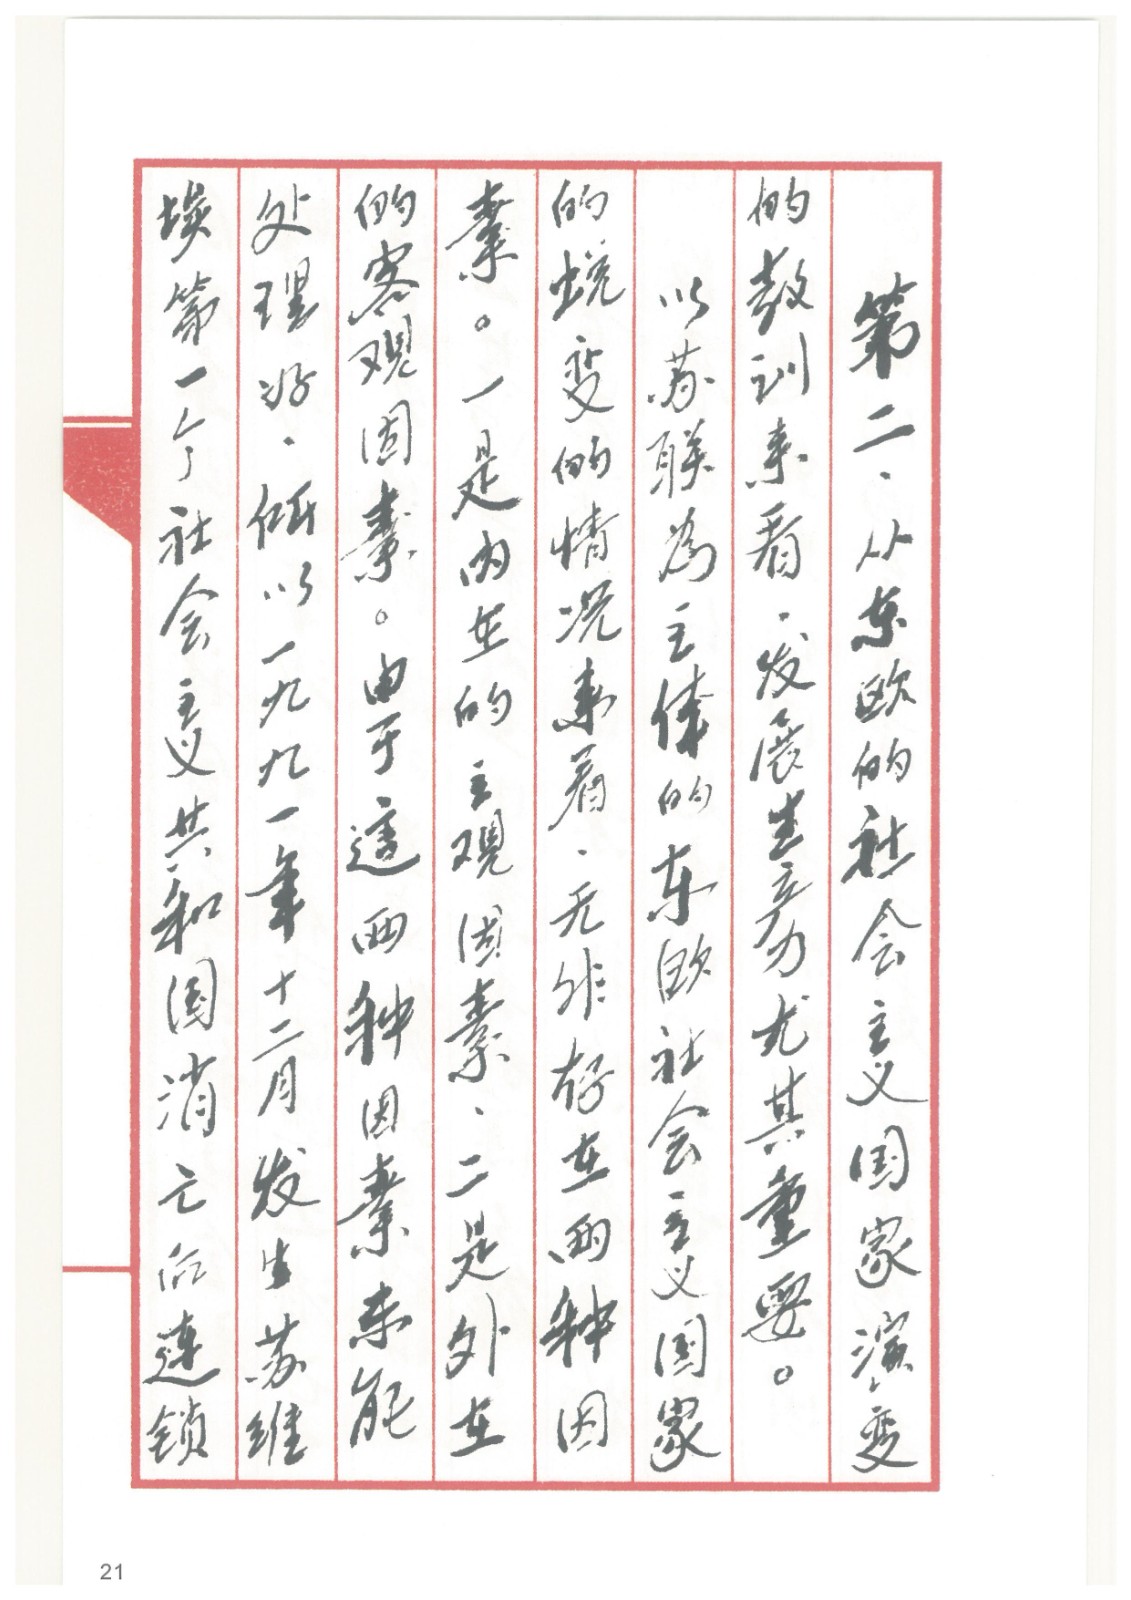 第二、从东欧的社会主义国家演变
的教训来看、发展生产力尤其重要。
以苏联为主体的东欧社会主义国家
的蜕变的情况来看、无非存在两种因
素。一是内在的主观因素、二是外在
的客观因素。由于这两种因素未能
处理好、所以一九九一年十二月发生苏维
埃第一个社会主义共和国消亡的连锁
21